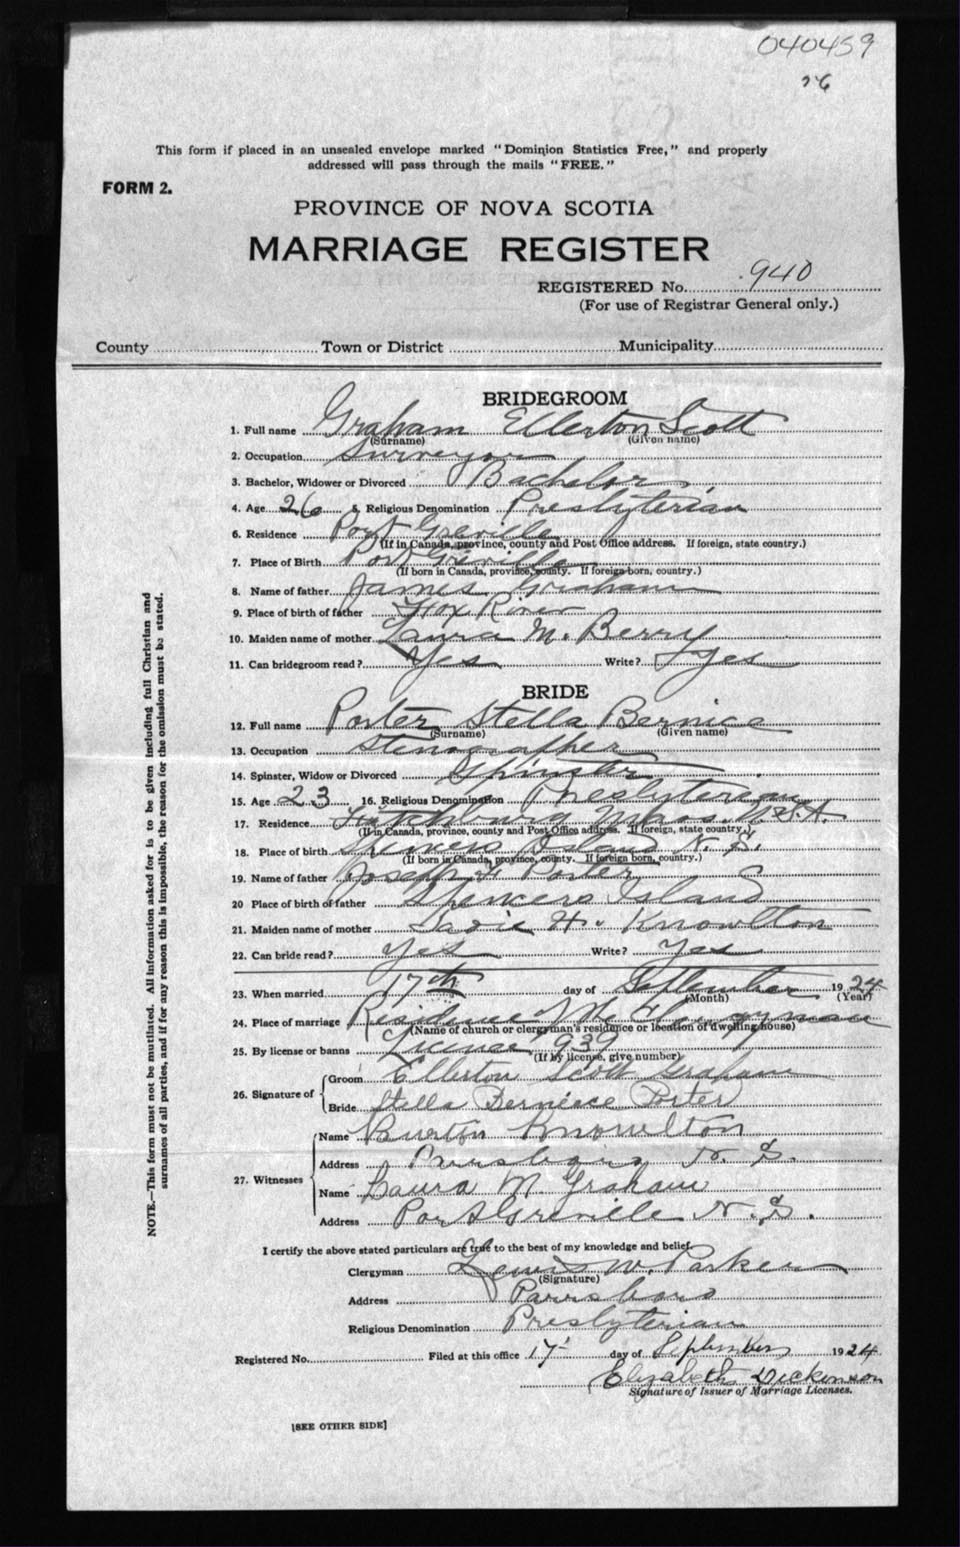 040459
26
This form if placed in an unsealed envelope marked "Dominion Statistics Free," and properly
addressed will pass through the mails "FREE."
FORM 2.
PROVINCE OF NOVA SCOTIA
MARRIAGE REGISTER
REGISTERED No. 940
(For use of Registrar General only.)
County Town or District Municipality
BRIDEGROOM
1. Full name Graham Ellerton Scott
(Surname) (Given name)
2. Occupation Surveyor
3. Bachelor, Widower or Divorced Bachelor
4. Age 26 5. Religious Denomination Presbyterian
6. Residence Port Greville
(If in Canada, province, county and Post Office address. If foreign, state country.)
7. Place of Birth Port Greville
(If born in Canada, province, county. If foreign born, country.)
8. Name of father James Graham
9. Place of birth of father Fox River
10. Maiden name of mother Laura M. Berry
11. Can bridegroom read? Yes Write? Yes
BRIDE
12. Full name Porter Stella Bernice
(Surname) (Given name)
13. Occupation Stenographer
14. Spinster, Widow or Divorced Spinster
15. Age 23 16. Religious Denomination Presbyterian
17. Residence Fitchburg Mass. U.S.A
(If in Canada, province, county and Post Office address. If foreign, state country.)
18. Place of birth Spencers Island N. S.
(If born in Canada, province, county. If foreign born, country.)
19. Name of father Joseph H Porter
20 Place of birth of father Spencers Island
21. Maiden name of mother Sadie H. Knowlton
22. Can bride read? Yes Write? Yes
23. When married 17th day of September 1924
(Month) (Year)
24. Place of marriage Residence of the Clergyman
(Name of church or clergyman's residence or location of dwelling house)
25. By license or banns License 939
(If by license, give number)
26. Signature of Groom Ellerton Scott Graham
Bride Stella Berniece Porter
27. Witnesses Name Burton Knowlton
Address Parrsboro N. S.
Name Laura M. Graham
Address Port Greville N. S.
I certify the above stated particulars are true to the best of my knowledge and belief.
Clergyman Lewis W. Parker
(Signature)
Address Parrsboro
Religious Denomination Presbyterian
Registered No. Filed at this office 17 day of September 1924
Elizabeth Dickinson
Signature of Issuer of Marriage Licenses.
[SEE OTHER SIDE]
NOTE.—This form must not be mutilated. All information asked for is to be given including full Christian and
surnames of all parties, and if for any reason this is impossible, the reason for the omission must be stated.